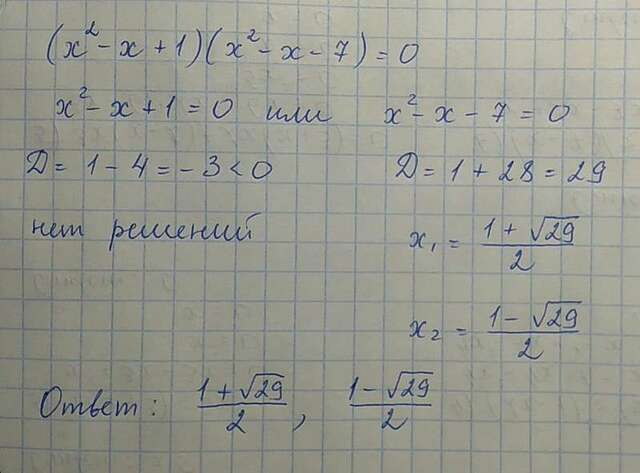 (x² - x + 1)(x² - x - 7) = 0
x² - x + 1 = 0 или x² - x - 7 = 0
D = 1 - 4 = - 3 < 0 D = 1 + 28 = 29
нет решений x₁ = (1 + √29)/2
x₂ = (1 - √29)/2
Ответ: (1 + √29)/2 , (1 - √29)/2